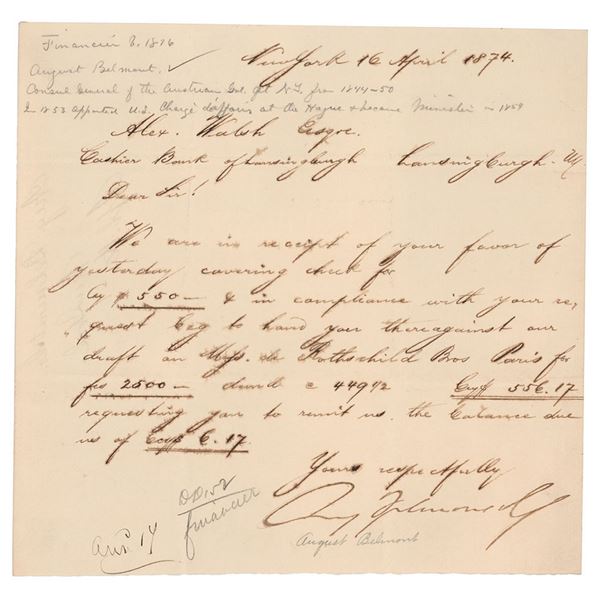 Financier b. 1816
August Belmont,
Consul General of the Austrian Gvt. at N.Y. from 1844-50
In 1853 appointed U.S. Chargé d'affairs at the Hague & became Minister in 1854
New York 16 April 1874.
Alex. Walsh Esqre.
Cashier Bank of Lansingburgh Lansingburgh. NY
Dear Sir!
We are in receipt of your favor of
yesterday covering check for
Cy $ 550— & in compliance with your re-
"quest beg to hand you thereagainst our
draft on Mess. de Rothschild Bros Paris for
fcs 2500— @ 449 1/2 Cy$ 556.17
requesting you to remit us the balance due
us of Ccy$ 6.17.
Yours respectfully
August Belmont
financier
Ans 14